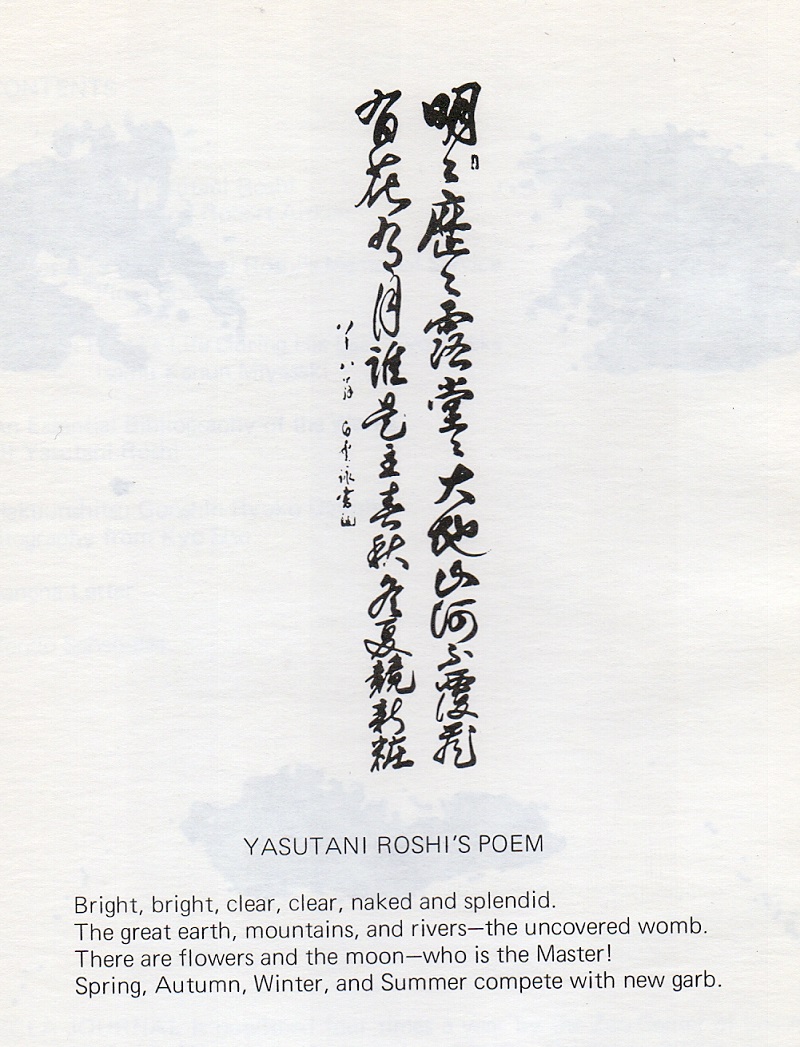 明〻歴〻露堂〻大地山河不覆蔵
有花有月誰是主春秋冬夏競新粧
八十八翁 白雲
YASUTANI ROSHI'S POEM
Bright, bright, clear, clear, naked and splendid.
The great earth, mountains, and rivers—the uncovered womb.
There are flowers and the moon—who is the Master!
Spring, Autumn, Winter, and Summer compete with new garb.